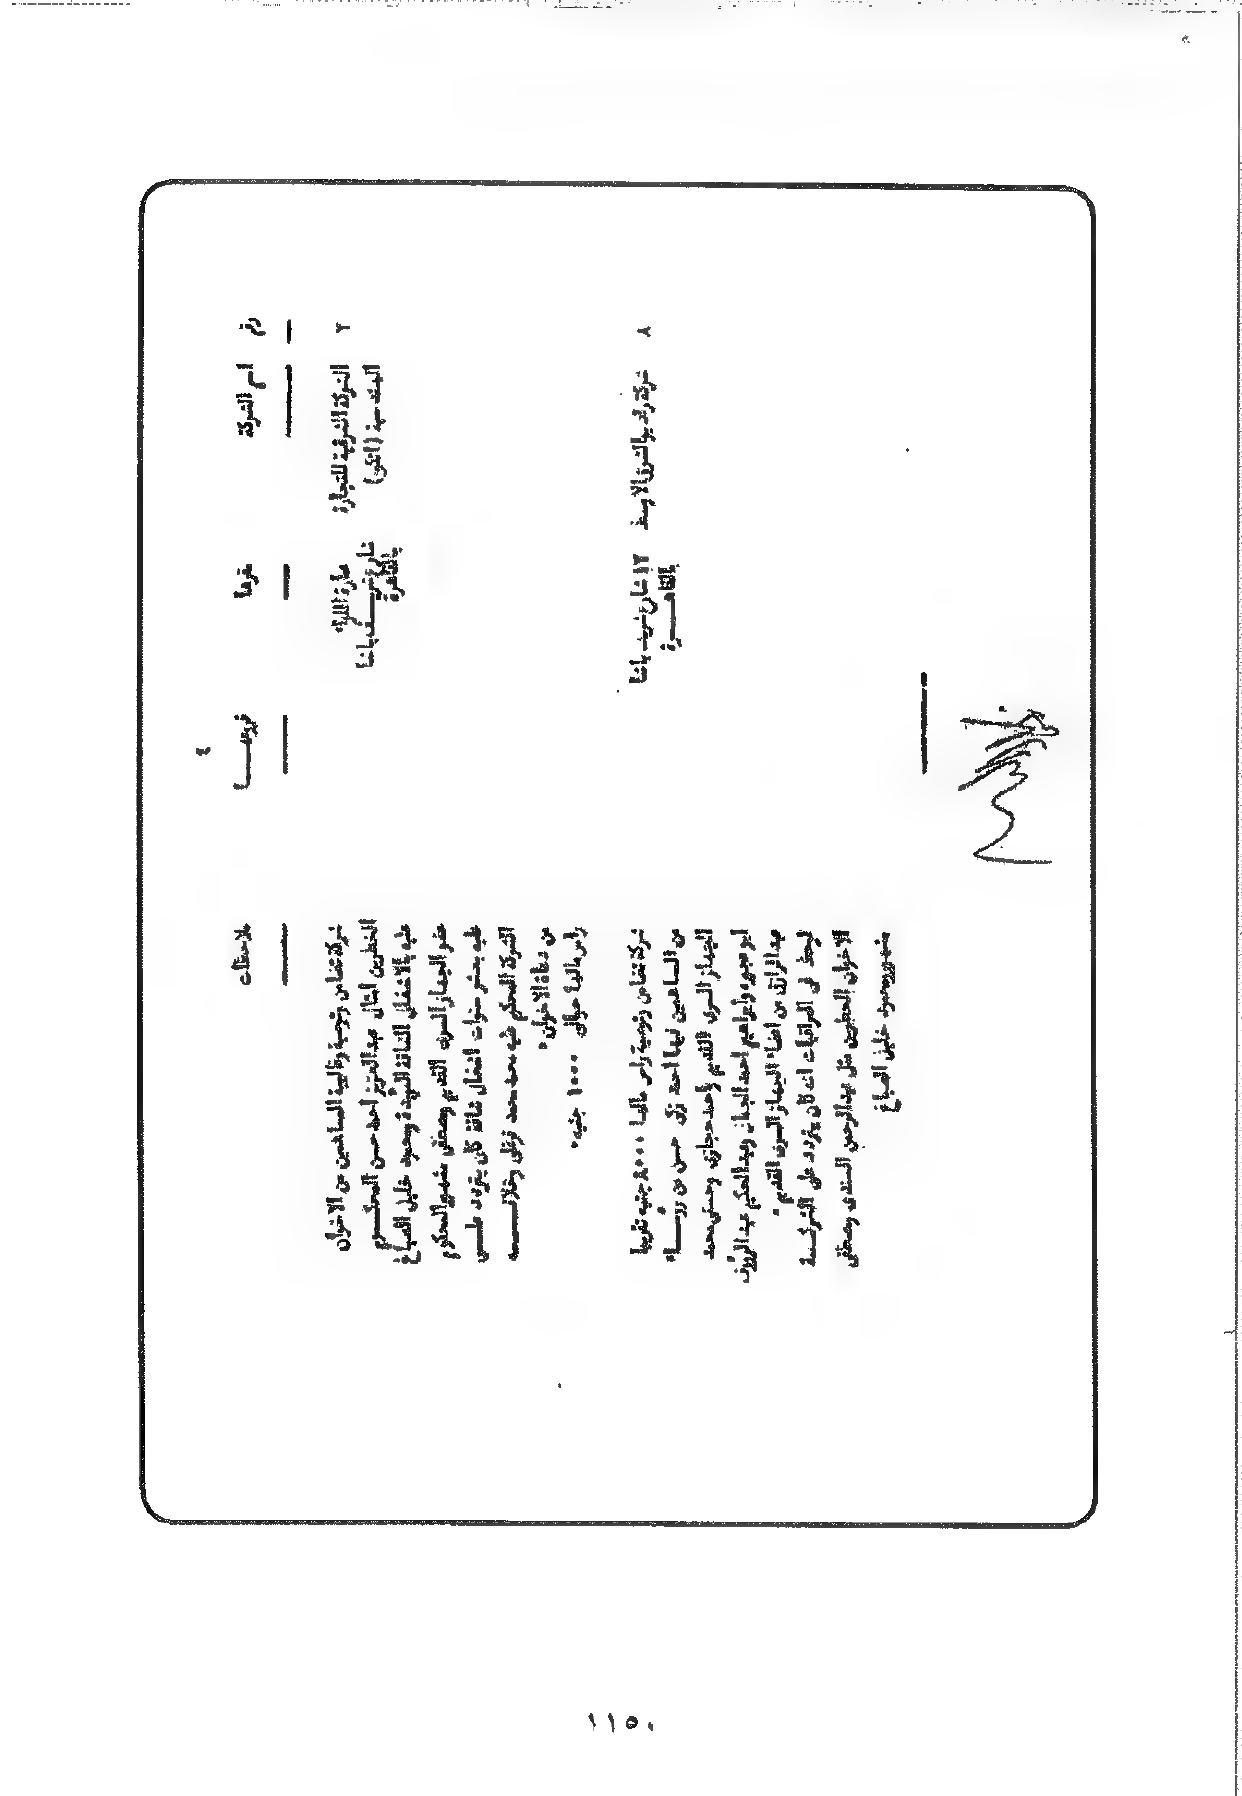 ٤
رقم
اسم الشركة
مقرها
فروعهــــا
ملاحظات
٧
الشركة الشرقية للتجارة
الهندسية (انكو)
عمارة اللواء
شارع شريــــف باشا
بالقاهرة
شركة تضامن وتوصية وغالبية المساهمين من الاخوان
الخطرين امثال عبد العزيز احمد حسن المحكــوم
عليه بالاشغال الشاقة المؤبدة ومحمود خليل الصباغ
عضو الجهاز السرى القديم ومصطفى مشهور المحكوم
عليه بعشر سنوات اشغال شاقة كان يتردد علـــى
الشركة المحكم عليه محمد محمد فرغلى وخلافــــــه
من دعاة الاخوان ٠
رأس مالها حوالى ١٠٠٠ جنيه ٠
٨
شركة راديو الشرق الاوسط
١٢ شارع شريف باشا
القاهــــــرة
شركة تضامن وتوصية رأس مالها ٨٠٠٠ جنيه تقريبا
من المساهمين فيها احمد زكى حسن من رؤســـاء
الجهاز السرى القديم واحمد حجازى وحسنى محمد
ابو وابراهيم احمد وعبد الحكيم عبد الرؤوف
من اعضاء الجهاز السرى القديم ٠
لوحظ فى المراقبات انه كان يتردد على الشركـــة
الاخوان الخطرين مثل عبد الرحمن السندى ومصطفى
مشهور ومحمود خليل الصباغ
١١٥٠